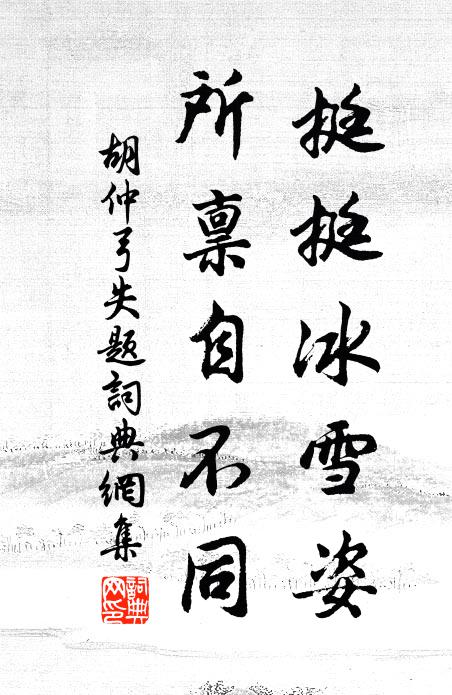 挺挺冰雪姿
所禀自不同
胡仲弓失題詞典網集
詞典網印